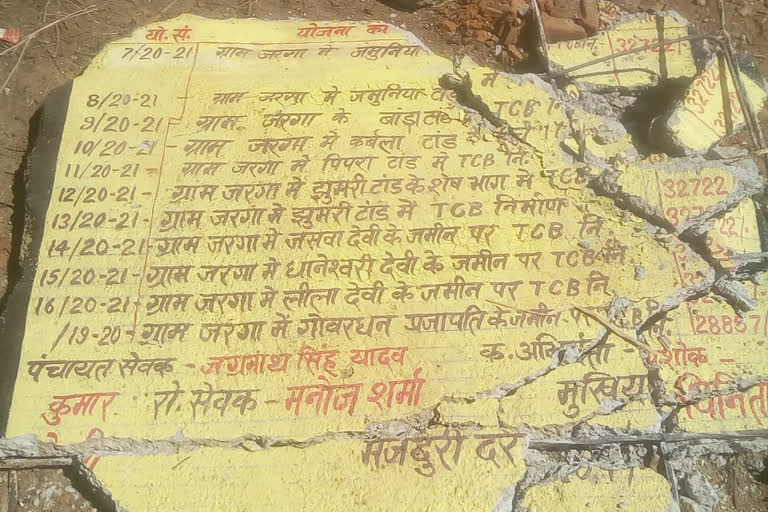 यो. सं. योजना का
7/20-21 ग्राम जरगा में जमुनिया
8/20-21 - ग्राम जरगा में जमुनिया टांड में
9/20-21 - ग्राम जरगा के बांडाटांड TCB नि
10/20-21 - ग्राम जरगा में कर्बला टांड
11/20-21 - ग्राम जरगा में पिपरा टांड में TCB नि.
12/20-21 - ग्राम जरगा में झुमरी टांड के शेष भाग में TCB 32722
13/20-21 - ग्राम जरगा में झुमरी टांड में TCB निर्माण
14/20-21 - ग्राम जरगा में जसवा देवी के जमीन पर TCB नि.
15/20-21 - ग्राम जरगा में धानेश्वरी देवी के जमीन पर TCB नि.
16/20-21 - ग्राम जरगा में लीला देवी के जमीन पर TCB नि.
/19-20 - ग्राम जरगा में गोवरधन प्रजापति के जमीन 28857
पंचायत सेवक - जगन्नाथ सिंह यादव क. अभियंता - अशोक
कुमार रो. सेवक - मनोज शर्मा मुखिया विनिता
मजदुरी दर